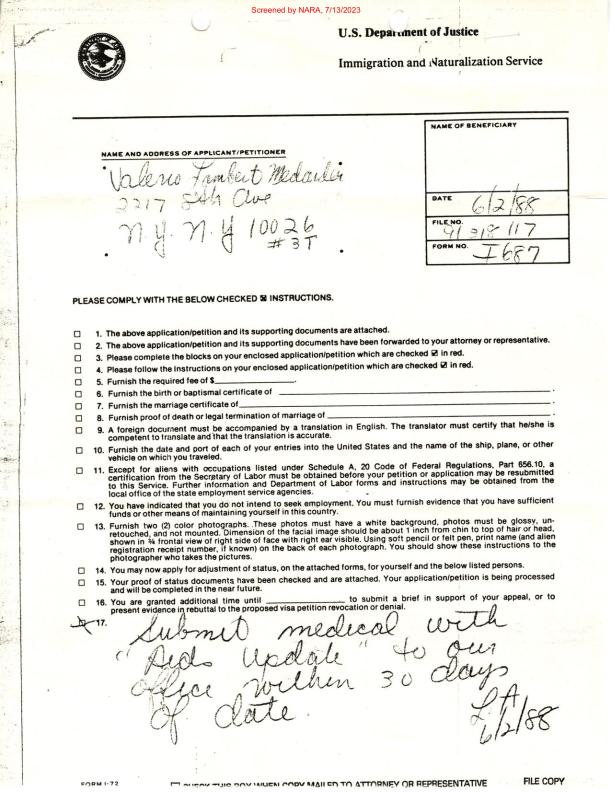 Screened by NARA, 7/13/2023
U.S. Department of Justice
Immigration and Naturalization Service
NAME AND ADDRESS OF APPLICANT/PETITIONER
Valerio Lambert
2217 8th Ave
N.Y. N.Y 10026
# 3T
NAME OF BENEFICIARY
DATE 6/2/88
FILE NO. 91 918 117
FORM NO. I687
PLEASE COMPLY WITH THE BELOW CHECKED ☒ INSTRUCTIONS.
☐ 1. The above application/petition and its supporting documents are attached.
☐ 2. The above application/petition and its supporting documents have been forwarded to your attorney or representative.
☐ 3. Please complete the blocks on your enclosed application/petition which are checked ☑ in red.
☐ 4. Please follow the instructions on your enclosed application/petition which are checked ☑ in red.
☐ 5. Furnish the required fee of $____________.
☐ 6. Furnish the birth or baptismal certificate of ____________.
☐ 7. Furnish the marriage certificate of ____________.
☐ 8. Furnish proof of death or legal termination of marriage of ____________.
☐ 9. A foreign document must be accompanied by a translation in English. The translator must certify that he/she is
competent to translate and that the translation is accurate.
☐ 10. Furnish the date and port of each of your entries into the United States and the name of the ship, plane, or other
vehicle on which you traveled.
☐ 11. Except for aliens with occupations listed under Schedule A, 20 Code of Federal Regulations, Part 656.10, a
certification from the Secretary of Labor must be obtained before your petition or application may be resubmitted
to this Service. Further information and Department of Labor forms and instructions may be obtained from the
local office of the state employment service agencies.
☐ 12. You have indicated that you do not intend to seek employment. You must furnish evidence that you have sufficient
funds or other means of maintaining yourself in this country.
☐ 13. Furnish two (2) color photographs. These photos must have a white background, photos must be glossy, un-
retouched, and not mounted. Dimension of the facial image should be about 1 inch from chin to top of hair or head,
shown in ¾ frontal view of right side of face with right ear visible. Using soft pencil or felt pen, print name (and alien
registration receipt number, if known) on the back of each photograph. You should show these instructions to the
photographer who takes the pictures.
☐ 14. You may now apply for adjustment of status, on the attached forms, for yourself and the below listed persons.
☐ 15. Your proof of status documents have been checked and are attached. Your application/petition is being processed
and will be completed in the near future.
☐ 16. You are granted additional time until ____________ to submit a brief in support of your appeal, or to
present evidence in rebuttal to the proposed visa petition revocation or denial.
☒ 17. Submit medical with
"Aids Update" to our
office within 30 days
of date.
L A
6/2/88
FORM I-72
☐ CHECK THIS BOX WHEN COPY MAILED TO ATTORNEY OR REPRESENTATIVE
FILE COPY